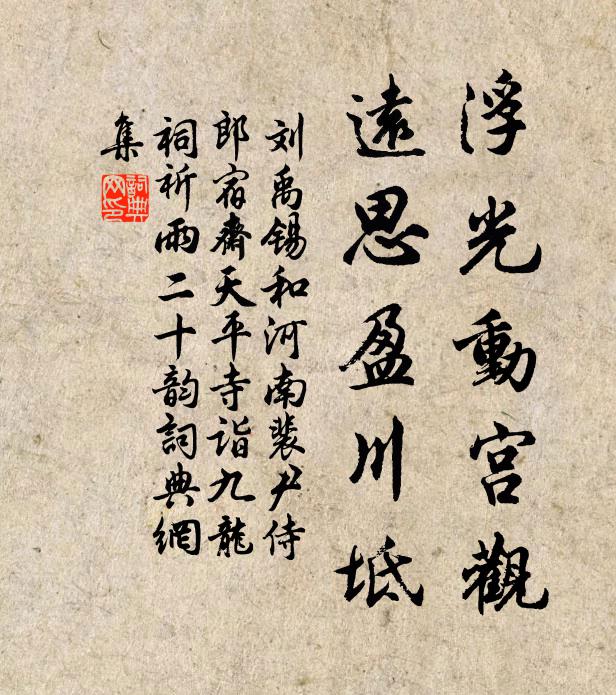 浮光動宮觀
遠思盈川坻
刘禹錫和河南裴尹侍
郎宿齋天平寺詣九龍
祠祈雨二十韵詞典網
集
詞典
网印